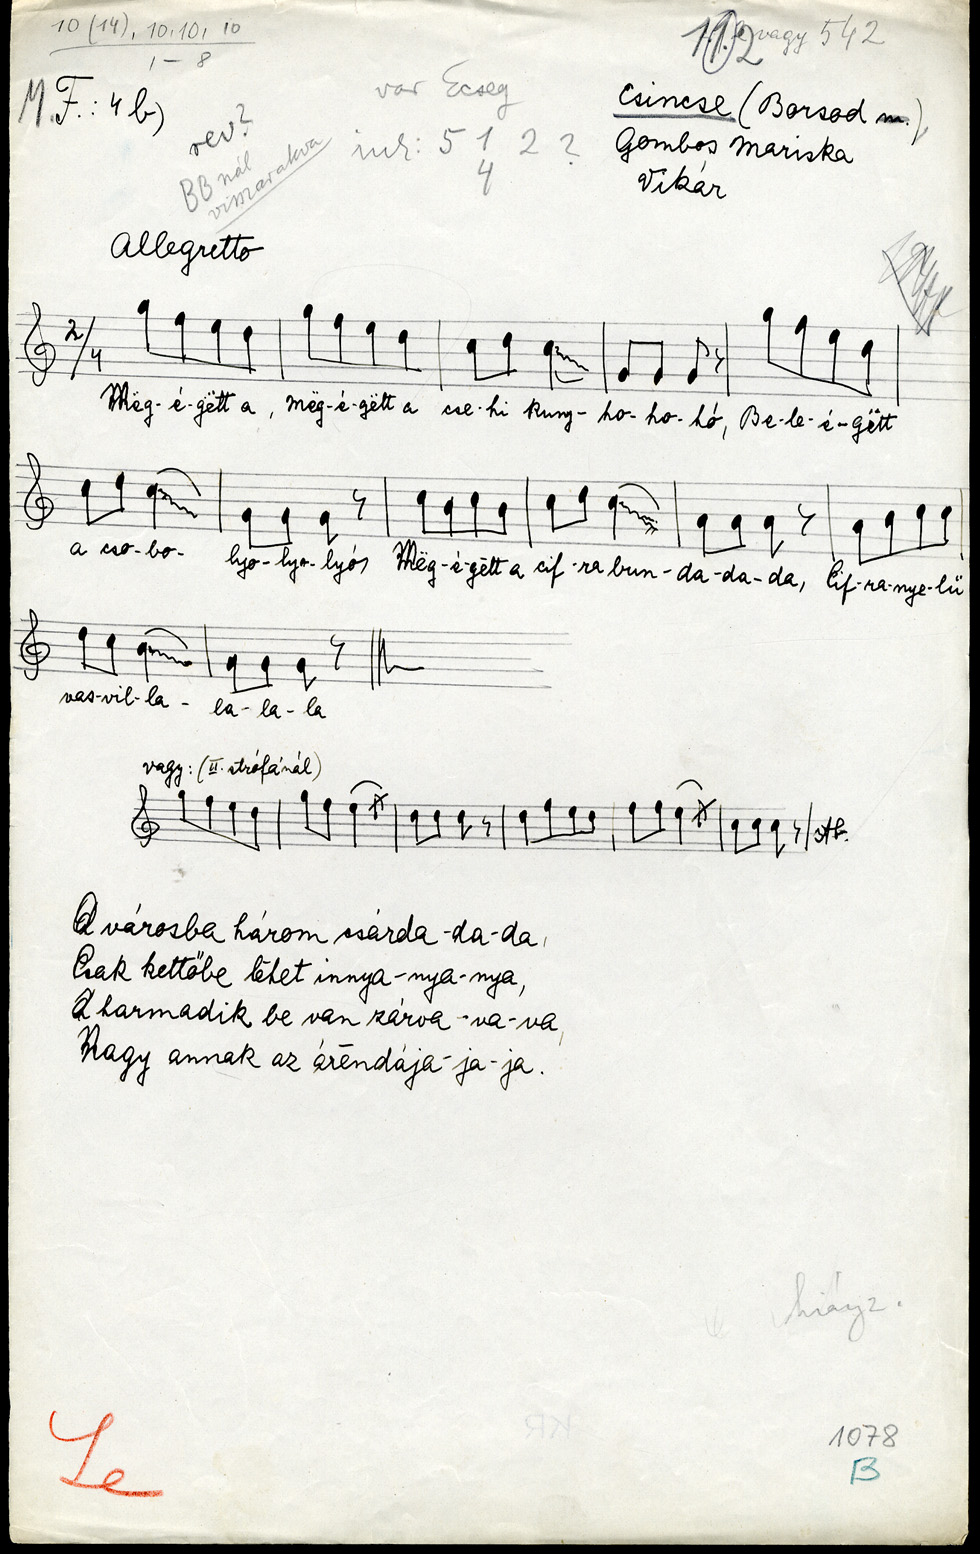 10 (14), 10.10, 10
1 - 8
vagy 542
M.F.: 4 b)
rev?
BBnál
visszarakva
var Ecseg
5 1 2 ?
4
Csincse (Borsod m.)
Gombos Mariska
Vikár
Allegretto
2/4
Mëg-é-gëtt a, mëg-é-gëtt a cse-hi kuny-ho-ho-hó, Be-le-é-gëtt
a cso-bo- lyo-lyo-lyós Mëg-é-gëtt a cif-ra bun-da-da-da, Cif-ra nye-lü
vas-vil-la- la-la-la
vagy: (II. strófánál)
stb.
A városba három csárda-da-da,
Csak kettőbe lëhet innya-nya-nya,
A harmadik be van zárva-va-va,
Nagy annak az árëndája-ja-ja.
hiányz.
Le
1078
B